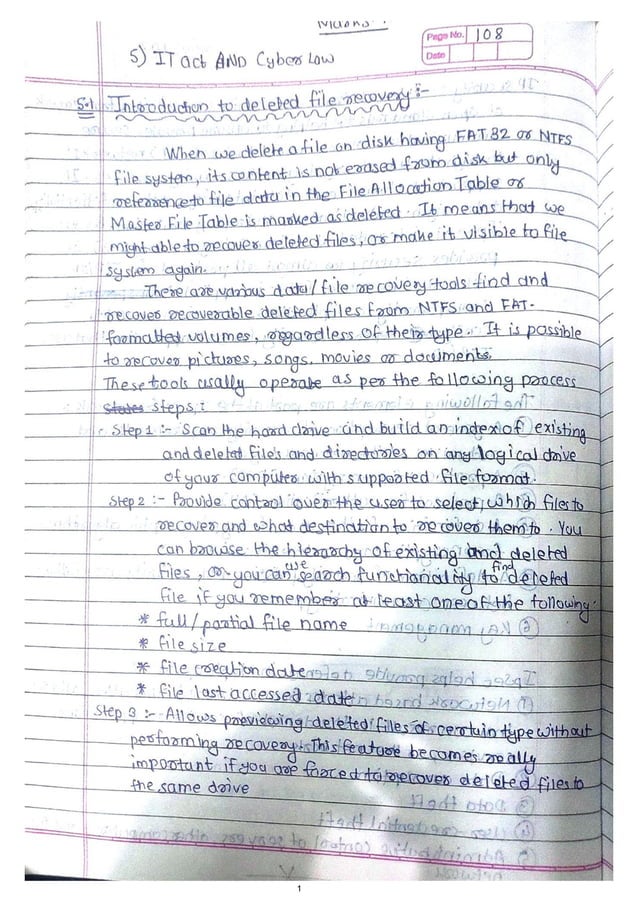 Page No. 108
Date
5) IT act AND Cyber Law
5.1 Introduction to deleted file recovery :-
When we delete a file on disk having FAT 32 or NTFS
file system, its content is not erased from disk but only
reference to file data in the File Allocation Table or
Master File Table is marked as deleted. It means that we
might able to recover deleted files, or make it visible to file
system again.
There are various data/file recovery tools find and
recover recoverable deleted files from NTFS and FAT-
formatted volumes, regardless of their type. It is possible
to recover pictures, songs, movies or documents.
These tools usally operate as per the following process
States steps :
Step 1 :- Scan the hard drive and build an index of existing
and deleted file's and directories on any logical drive
of your computer with supported file format.
Step 2 :- Provide control over the user to select, which files to
recover and what destination to recover them to. You
can browse the hierarchy of existing and deleted
files, or you can use search functionality to find deleted
file if you remember at least one of the following:
* full/partial file name
* file size
* file creation date
* file last accessed date
Step 3 :- Allows previewing deleted files of certain type without
performing recovery. This feature becomes really
important if you are forced to recover deleted files to
the same drive
1